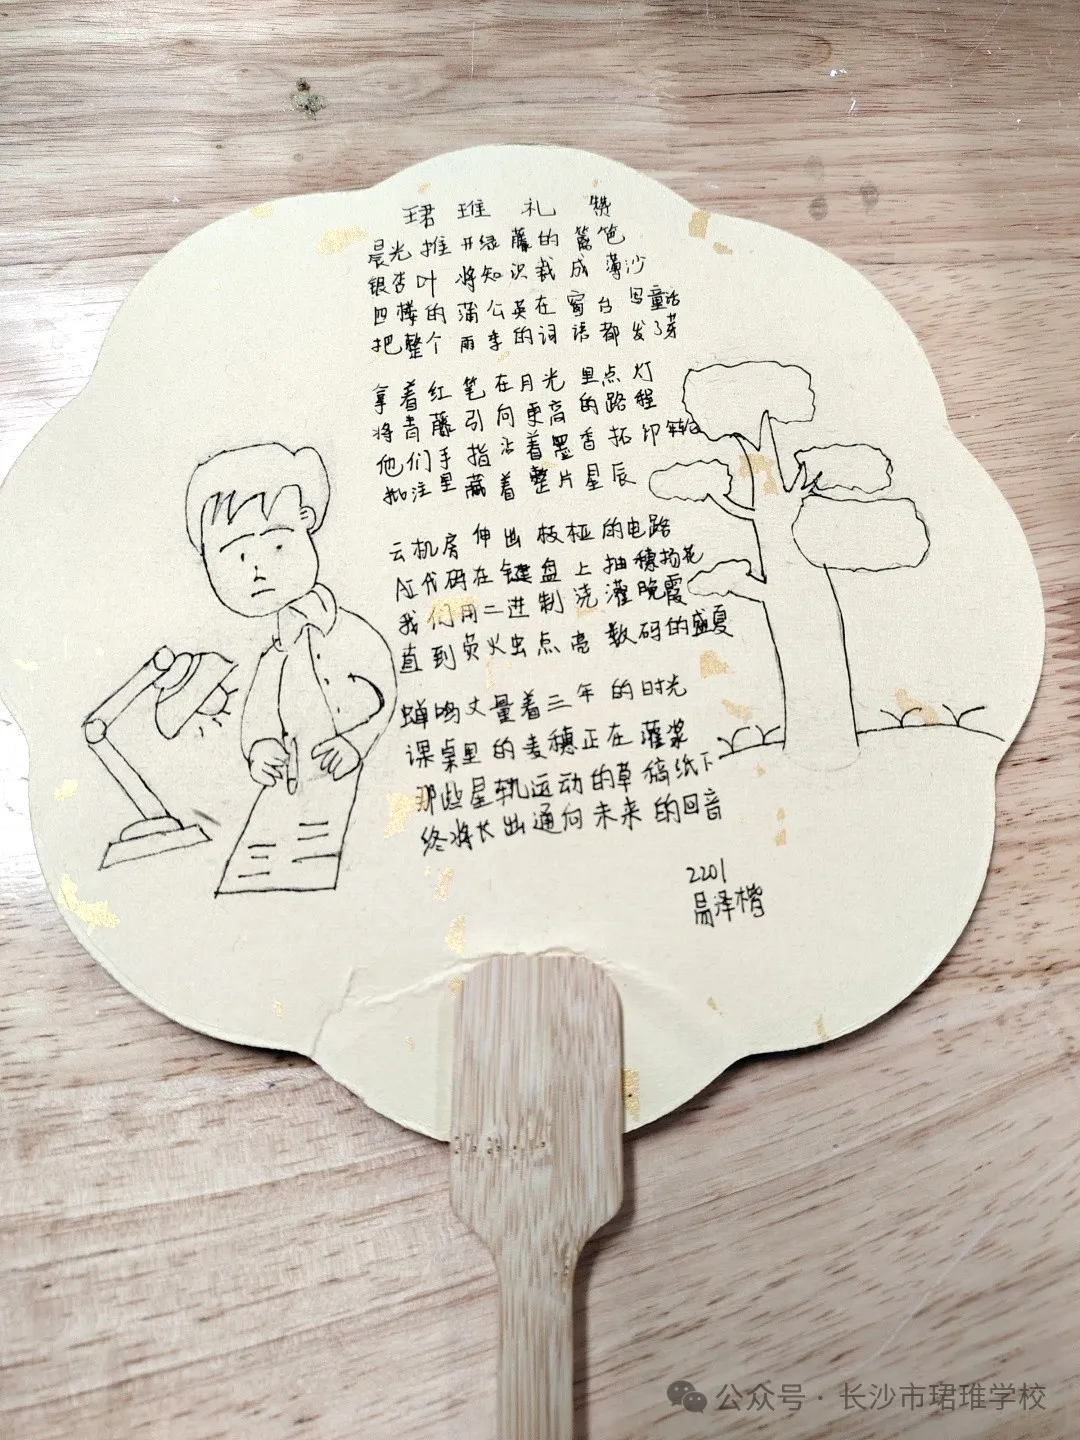 珺琟礼赞
晨光推开绿藤的篱笆
银杏叶将知识裁成薄沙
四楼的蒲公英在窗台写童话
把整个雨季的词语都发了芽
拿着红笔在月光里点灯
将青藤引向更高的路程
他们手指沾着墨香拓印年轮
批注里藏着整片星辰
云机房伸出枝桠的电路
AI代码在键盘上抽穗扬花
我们用二进制浇灌晚霞
直到荧火虫点亮数码的盛夏
蝉鸣丈量着三年的时光
课桌里的麦穗正在灌浆
那些星轨运动的草稿纸下
终将长出通向未来的回音
2201
易泽楷
公众号·长沙市珺琟学校